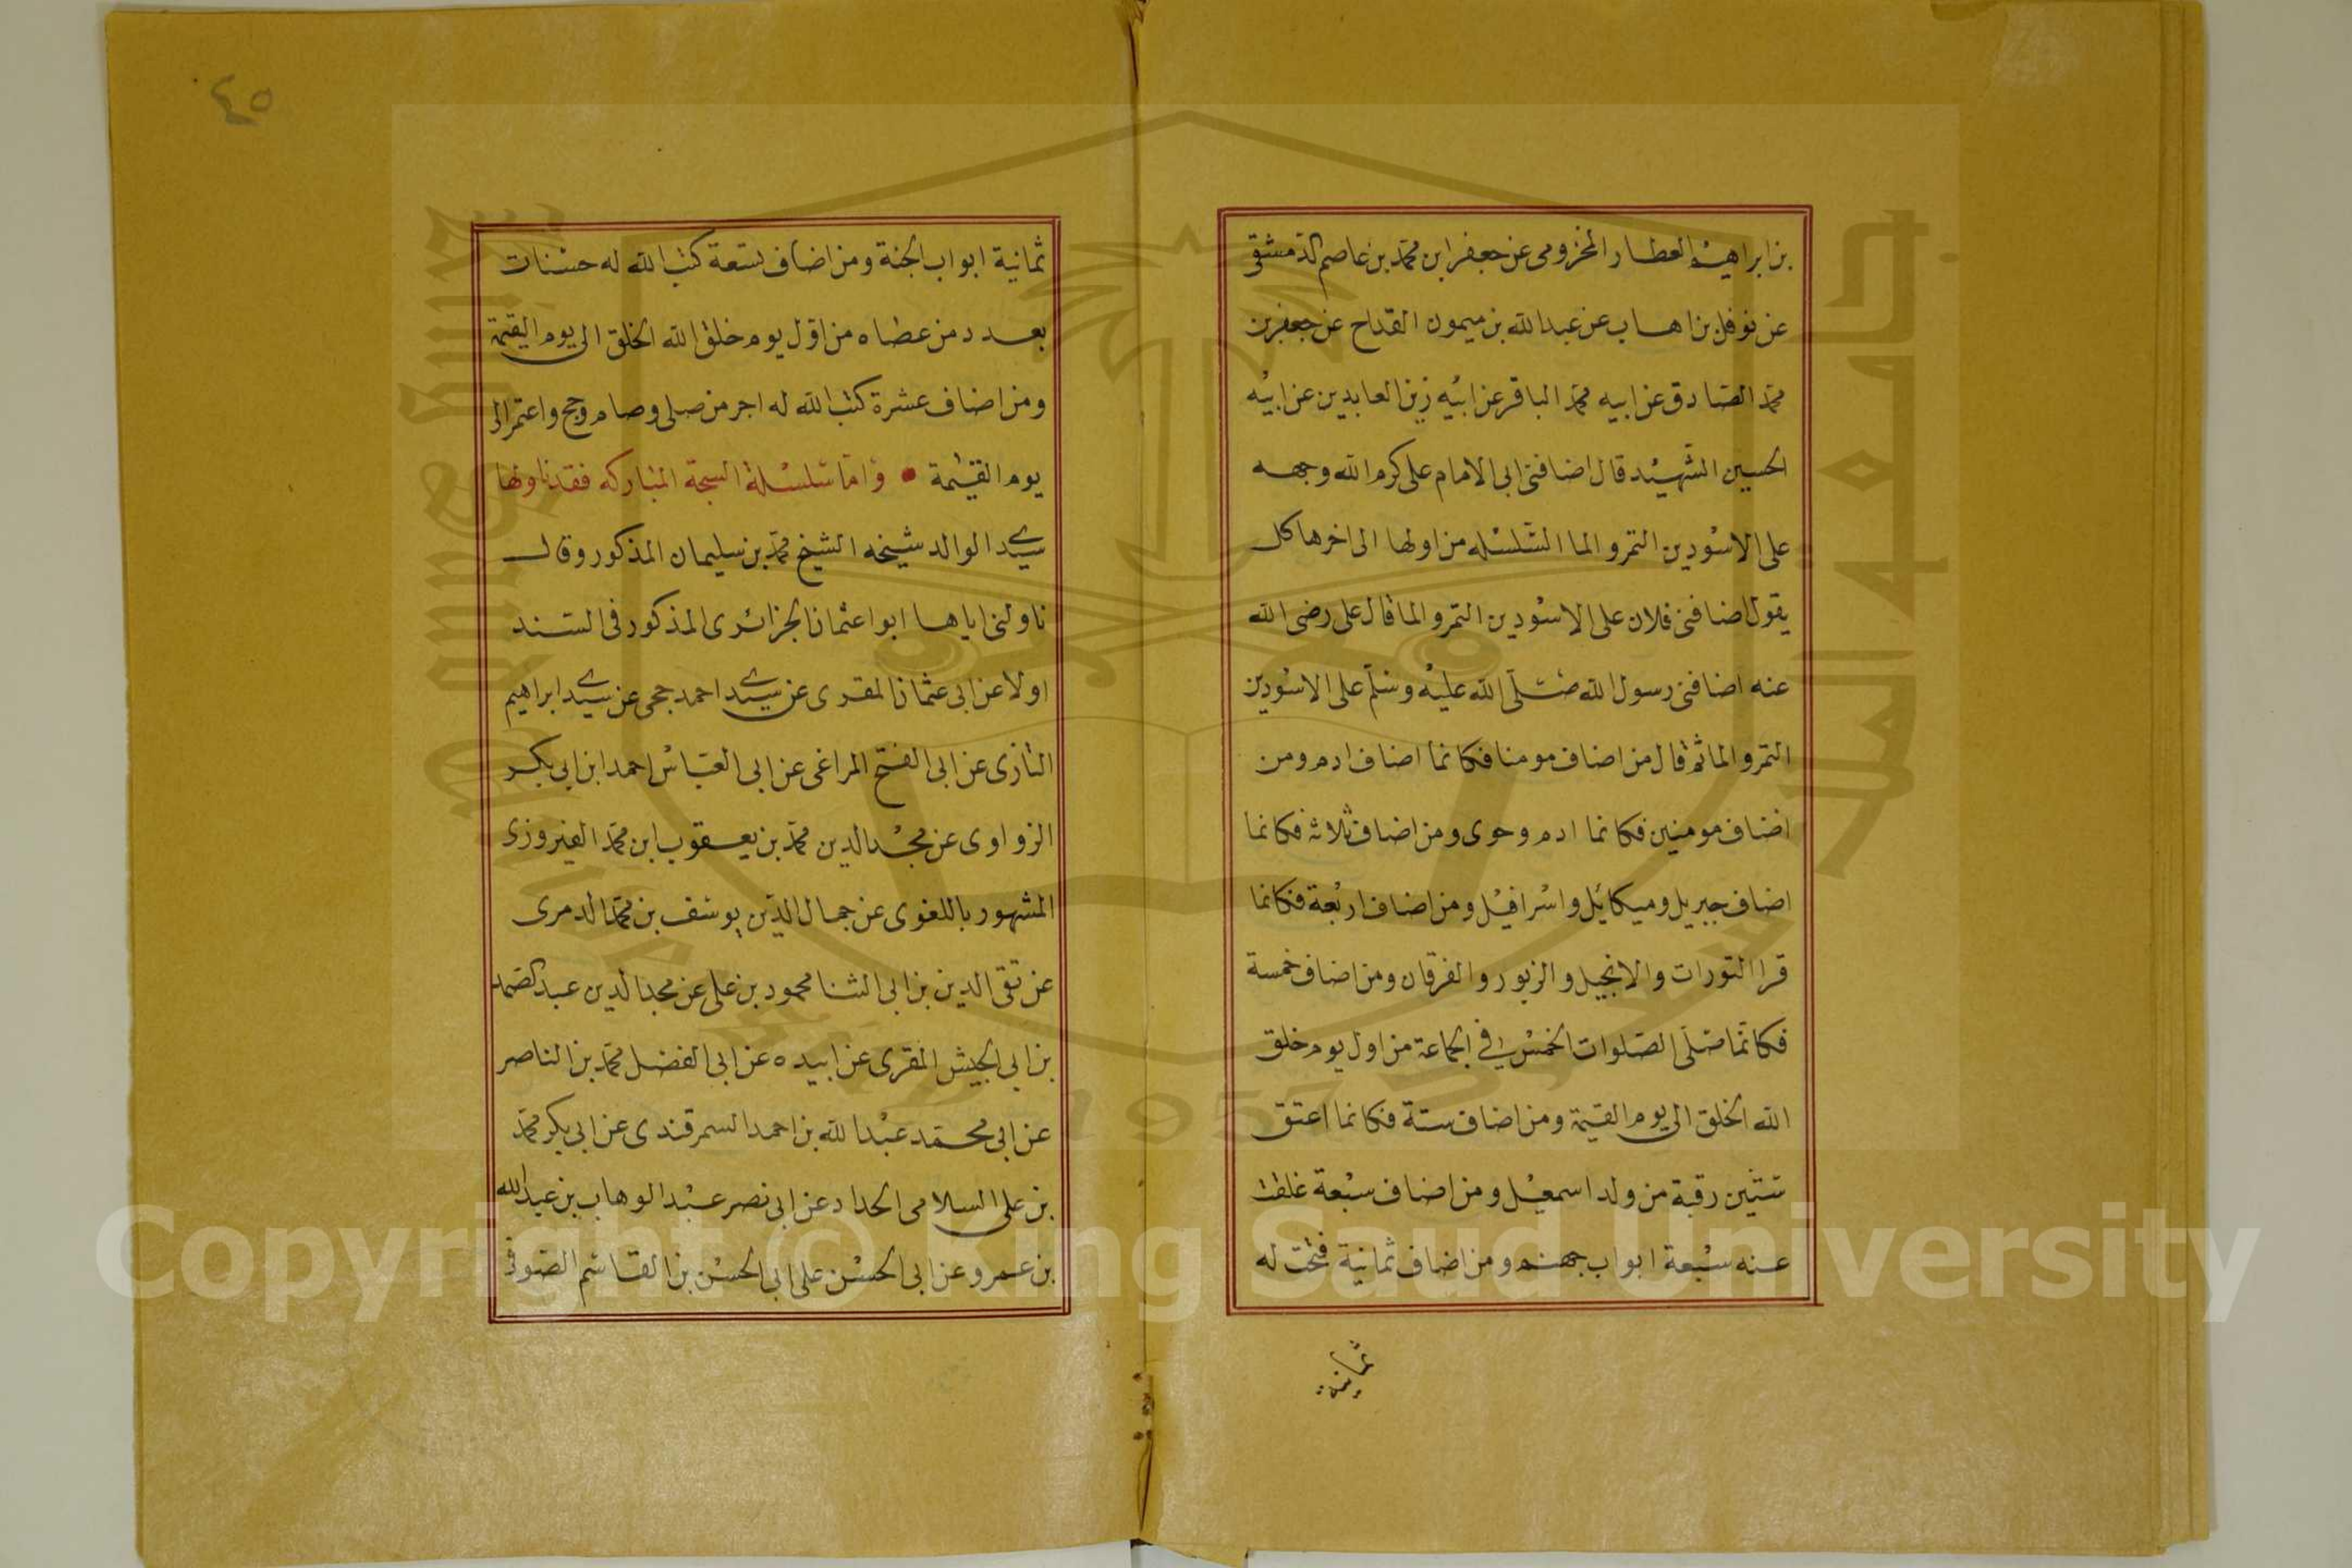 بن ابراهيم العطار المخزومى عن جعفر ابن محمد بن عاصم الدمشقى
عن نوفل بن اهاب عن عبد الله بن ميمون القداح عن جعفر بن
محمد الصادق عن ابيه محمد الباقر عن ابيه زين العابدين عن ابيه
الحسين الشهيد قال اضافنى ابى الامام على كرم الله وجهه
على الاسودين التمر والما السلسله من اولها الى اخرها كل
يقول اضافنى فلان على الاسودين التمر والما قال على رضى الله
عنه اضافنى رسول الله صلى الله عليه وسلم على الاسودين
التمر والما ثم قال من اضاف مومنا فكانما اضاف ادم ومن
اضاف مومنين فكانما ادم وحوى ومن اضاف ثلاثه فكانما
اضاف جبريل وميكائيل واسرافيل ومن اضاف اربعة فكانما
قرا التورات والانجيل والزبور والفرقان ومن اضاف خمسة
فكانما صلى الصلوات الخمس فى الجماعة من اول يوم خلق
الله الخلق الى يوم القيمة ومن اضاف ستة فكانما اعتق
ستين رقبة من ولد اسمعيل ومن اضاف سبعة غلقت
عنه سبعة ابواب جهنم ومن اضاف ثمانية فتحت له
ثمانية
٤٥
ثمانية ابواب الجنة ومن اضاف تسعة كتب الله له حسنات
بعدد من عصاه من اول يوم خلق الله الخلق الى يوم القيمة
ومن اضاف عشرة كتب الله له اجر من صلى وصام وحج واعتمر الى
يوم القيمة • واما سلسلة السبحة المباركه فقد ناولها
سيدى الوالد شيخه الشيخ محمد بن سليمان المذكور وقال
ناولنى اياها ابو اعثمان الجزائرى المذكور فى السند
اولا عن ابى عثمان المقرى عن سيدى احمد حجى عن سيدى ابراهيم
التازى عن ابى الفتح المراغى عن ابى العباس احمد ابن ابى بكر
الزواوى عن مجد الدين محمد بن يعقوب ابن محمد الفيروزى
المشهور باللغوى عن جمال الدين يوسف بن محمد الدمرى
عن تقى الدين بن ابى الثنا محمود بن على عن مجد الدين عبد الصمد
بن ابى الجيش المقرى عن ابيه عن ابى الفضل محمد بن الناصر
عن ابى محمد عبد الله بن احمد السمرقندى عن ابى بكر محمد
بن على السلامى الحداد عن ابى نصر عبد الوهاب بن عبد الله
بن عمرو عن ابى الحسن على ابى الحسن بن القاسم الصوفى
Copyright © King Saud University